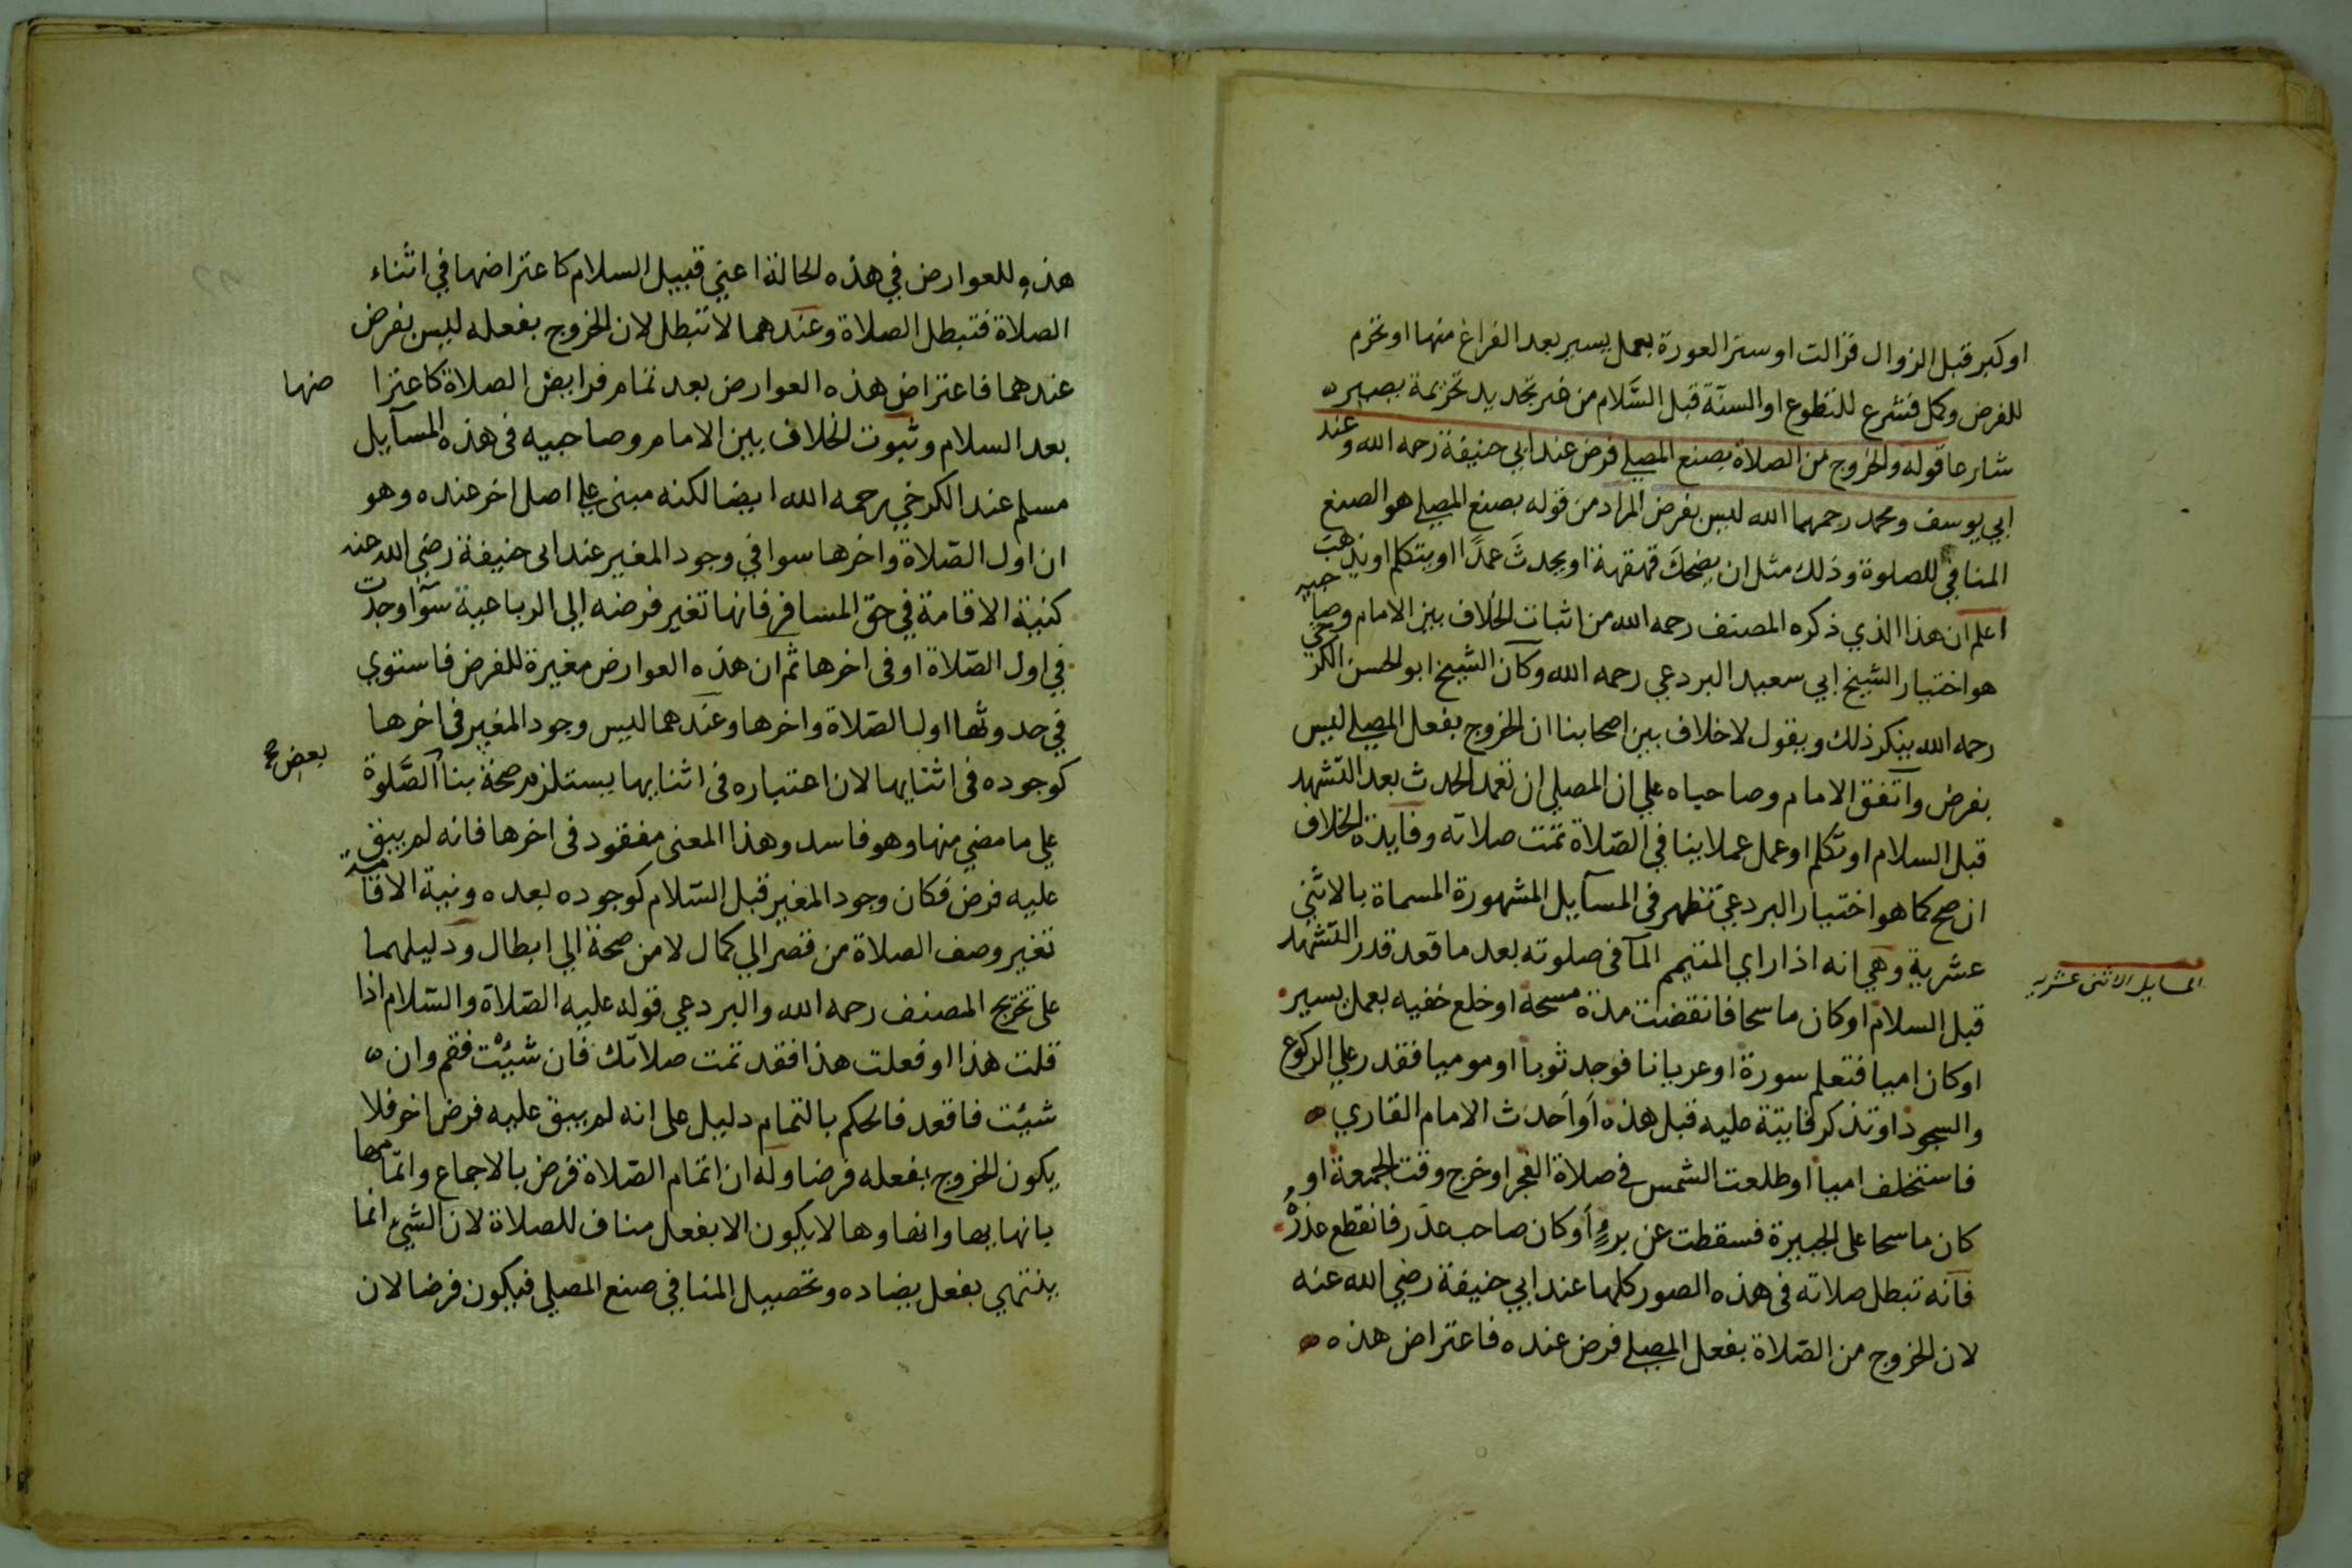 او كبر قبل الزوال فزالت او ستر العورة بعمل يسير بعد الفراغ منها او تحرم
للفرض وكمل فشرع للتطوع او السنّة قبل السَّلام من غير تجديد تحريمة يصير
شارعا قوله والخروج من الصلاة بصنع المصلي فرض عند ابي حنيفة رحمه الله وعند
ابي يوسف ومحمد رحمهما الله ليس بفرض المراد من قوله بصنع المصلي هو الصنع
المنافي للصلوة وذلك مثل ان يضحكَ قهقهة او يحدثَ عمدًا او يتكلم او يذهبَ
اعلم ان هذا الذي ذكره المصنف رحمه الله من اثبات الخلاف بين الامام وصاحبيه
هو اختيار الشيخ ابي سعيد البردعي رحمه الله وكان الشيخ ابو الحسن الكرخي
رحمه الله ينكر ذلك ويقول لا خلاف بين اصحابنا ان الخروج بفعل المصلي ليس
بفرض واتفق الامام وصاحباه علي ان المصلي ان تعمد الحدث بعد التشهد
قبل السلام او تكلم او عمل عملا ينافي الصّلاة تمت صلاته وفايدة الخلاف
ان صح كما هو اختيار البردعي تظهر فى المسآيل المشهورة المسماة بالاثني
عشرية وهي انه اذا راي المتيمم المآ فى صلوته بعد ما قعد قدر التشهد
المسايل الاثنى عشريه
قبل السلام او كان ماسحا فانقضت مدة مسحه او خلع خفيه بعمل يسير
او كان اميا فتعلم سورة او عريانا فوجد ثوبا او موميا فقدر علي الركوع
والسجود او تذكر فايتة عليه قبل هذه أو أحدث الامام القاري
فاستخلف اميا او طلعت الشمس في صلاة الفجر او خرج وقت الجمعة او
كان ماسحا على الجبيرة فسقطت عن برءٍ أو كان صاحب عذر فانقطع عذرُه
فانه تبطل صلاته فى هذه الصور كلها عند ابي حنيفة رضي الله عنه
لان الخروج من الصّلاة بفعل المصلي فرض عنده فاعتراض هذه
هذه للعوارض في هذه الحالة اعني قبيل السلام كاعتراضها في اثناء
الصلاة فتبطل الصلاة وعندهما لا تبطل لان الخروج بفعله ليس بفرض
عندهما فاعتراض هذه العوارض بعد تمام فرايض الصلاة كاعترا ضها
بعد السلام وثبوت الخلاف بين الامام وصاحبيه فى هذه المسآيل
مسلم عند الكرخي رحمه الله ايضا لكنه مبنى علي اصل اخر عنده وهو
ان اول الصّلاة واخرها سوا في وجود المغير عند ابى حنيفة رضي الله عنه
كنية الاقامة في حق المسافر فانها تغير فرضه الي الرباعية سوآ وجدت
في اول الصّلاة او فى اخرها ثم ان هذه العوارض مغيرة للفرض فاستوي
في حدوثها اول الصّلاة واخرها وعندهما ليس وجود المغير فى اخرها
كوجوده فى اثنايها لان اعتباره فى اثنايها يستلزم صحة بنا الصَّلوة
بعض صح
علي ما مضي منها وهو فاسد وهذا المعنى مفقود فى اخرها فانه لم يبق
عليه فرض فكان وجود المغير قبل السّلام كوجوده بعده ونية الاقامة
تغير وصف الصلاة من قصر الي كمال لا من صحة الي ابطال ودليلهما
على تخريج المصنف رحمه الله والبردعي قوله عليه الصّلاة والسّلام اذا
قلت هذا او فعلت هذا فقد تمت صلاتك فان شئت فقم وان
شئت فاقعد فالحكم بالتمام دليل على انه لم يبق عليه فرض اخر فلا
يكون الخروج بفعله فرضا وله ان اتمام الصّلاة فرض بالاجماع واتمامها
بانهايها وانهاوها لا يكون الا بفعل مناف للصلاة لان الشيء انما
ينتهي بفعل يضاده وتحصيل المنافي صنع المصلي فيكون فرضا لان